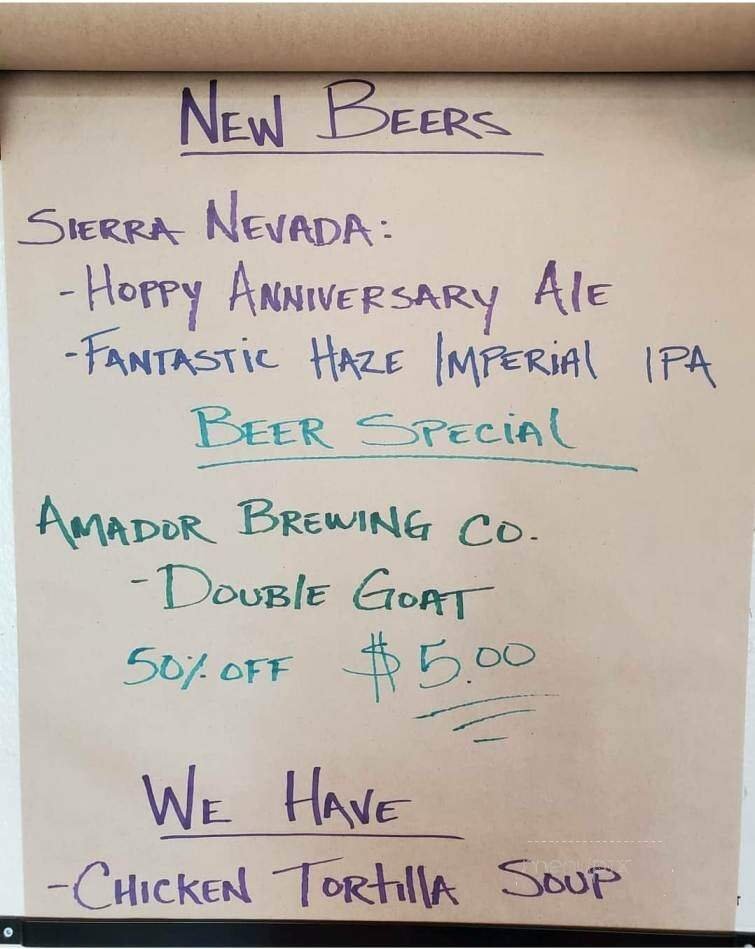 NEW BEERS
SIERRA NEVADA:
-HOPPY ANNIVERSARY AlE
-FANTASTiC HAZE IMPERiAl IPA
BEER SPECiAl
AMADOR BREWING CO.
-DOUBlE GOAT
50% OFF $5.00
WE HAVE
-CHICKEN TORTillA SOUP